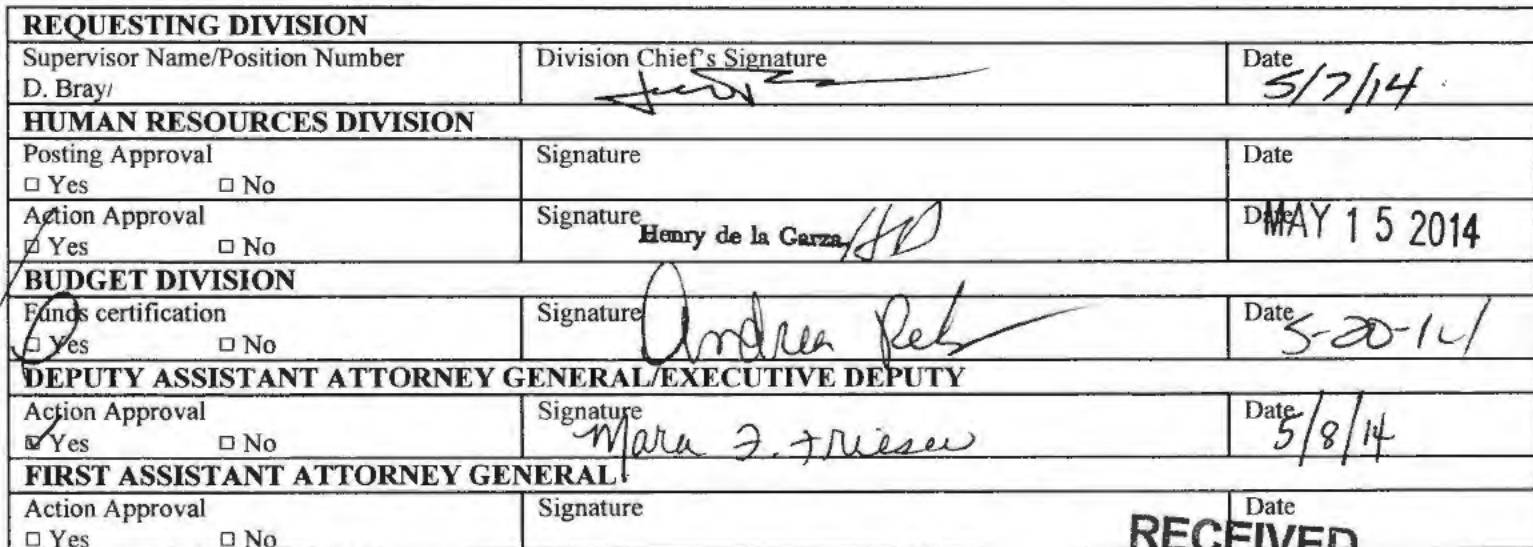 REQUESTING DIVISION
Supervisor Name/Position Number Division Chief's Signature Date
D. Bray/ 5/7/14
HUMAN RESOURCES DIVISION
Posting Approval Signature Date
□ Yes □ No
Action Approval Signature Date
□ Yes □ No Henry de la Garza HD MAY 15 2014
BUDGET DIVISION
Funds certification Signature Date
□ Yes □ No Andrea 5-20-14
DEPUTY ASSISTANT ATTORNEY GENERAL/EXECUTIVE DEPUTY
Action Approval Signature Date
☑ Yes □ No Mara F. Friesen 5/8/14
FIRST ASSISTANT ATTORNEY GENERAL
Action Approval Signature Date
□ Yes □ No RECEIVED